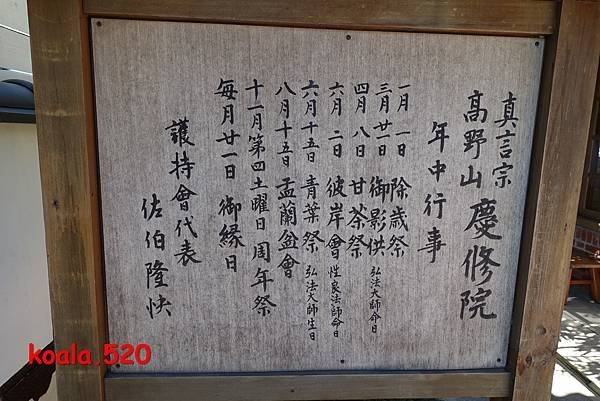 真言宗
高野山 慶修院
年中行事
一月一日 除歳祭
三月廿一日 御影供 弘法大師命日
四月八日 甘茶祭
六月二日 彼岸會 性良法師命日
六月十五日 青葉祭 弘法大師生日
八月十五日 盂蘭盆會
十一月第四土曜日 周年祭
每月廿一日 御縁日
護持會代表
佐伯隆快
koala.520